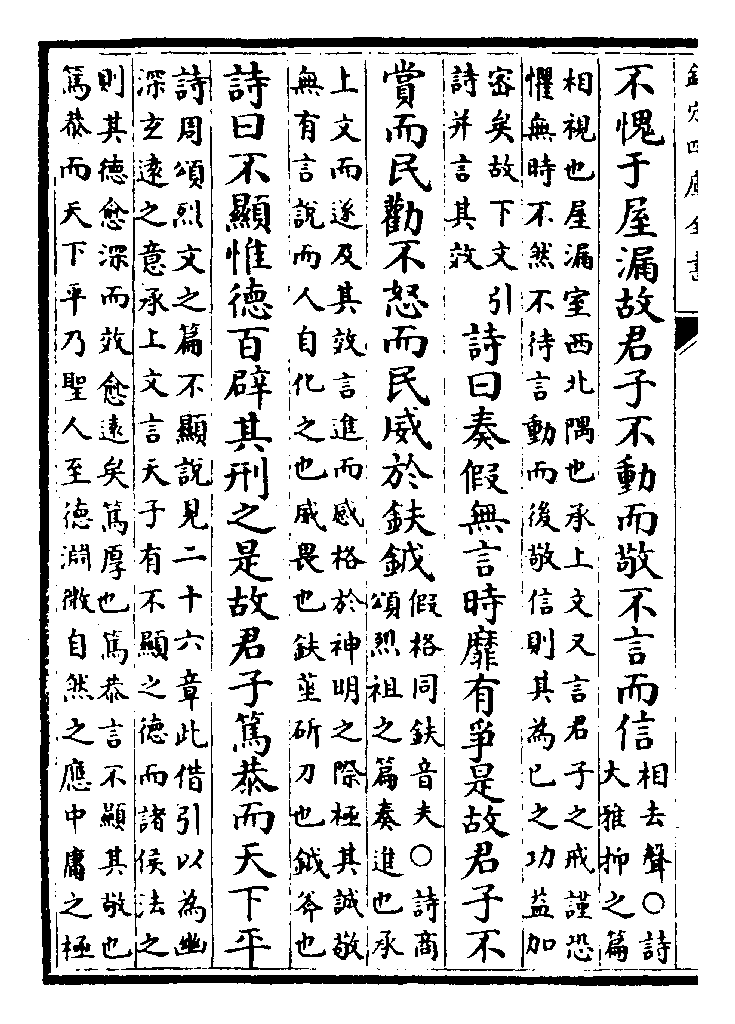 欽定四庫全書
不愧于屋漏故君子不動而敬不言而信
相去聲○詩
大雅抑之篇
相視也屋漏室西北隅也承上文又言君子之戒謹恐
懼無時不然不待言動而後敬信則其為己之功益加
密矣故下文引
詩并言其效
詩曰奏假無言時靡有爭是故君子不
賞而民勸不怒而民威於鈇鉞
假格同鈇音夫○詩商
頌烈祖之篇奏進也承
上文而遂及其效言進而感格於神明之際極其誠敬
無有言說而人自化之也威畏也鈇莝斫刀也鉞斧也
詩曰不顯惟德百辟其刑之是故君子篤恭而天下平
詩周頌烈文之篇不顯說見二十六章此借引以為幽
深玄遠之意承上文言天子有不顯之德而諸侯法之
則其德愈深而效愈遠矣篤厚也篤恭言不顯其敬也
篤恭而天下平乃聖人至德淵微自然之應中庸之極